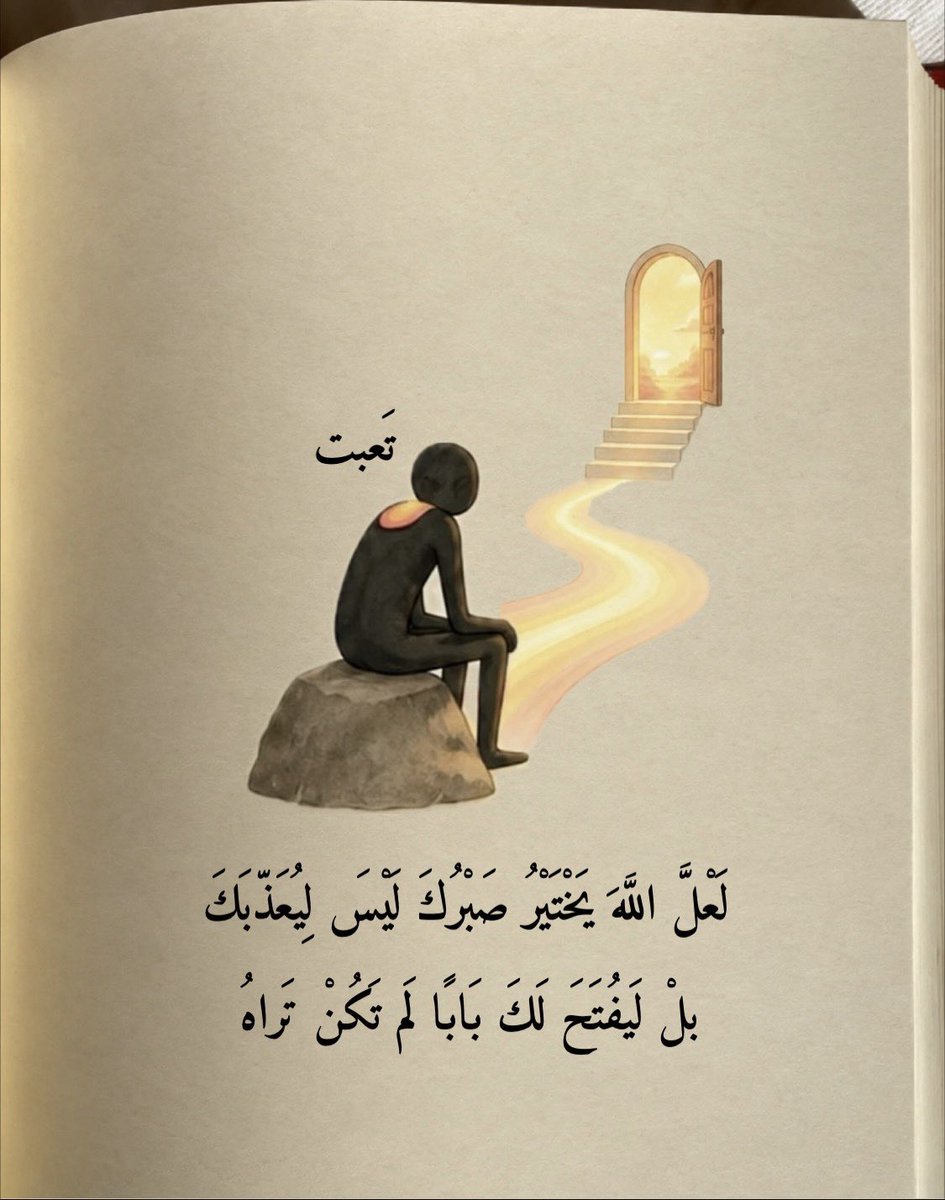 تَعبت
لَعْلَّ اللَّهَ يَخْتَيْرُ صَبْرُكَ لَيْسَ لِيُعَذّبَكَ
بلْ لَيفُتَحَ لَكَ بَابًا لَم تَكُنْ تَراهُ